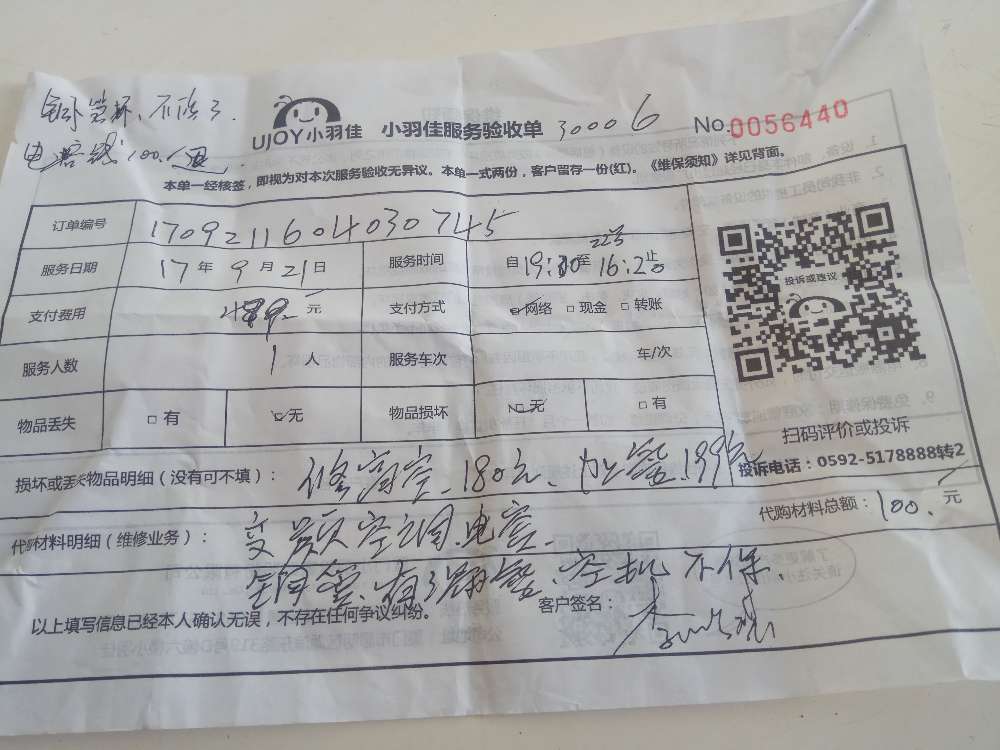 电容 100.
UJOY小羽佳 小羽佳服务验收单 30006 No.0056440
本单一经核签，即视为对本次服务验收无异议。本单一式两份，客户留存一份(红)。《维保须知》详见背面。
订单编号 170921160 4030745
服务日期 17 年 9 月 21 日 服务时间 自 19:30 至 22号 16:20 止
支付费用 元 支付方式 网络 □ 现金 □ 转账
服务人数 1 人 服务车次 车/次
物品丢失 □ 有 ☑ 无 物品损坏 ☑ 无 □ 有
投诉或建议
扫码评价或投诉
投诉电话：0592-5178888转2
损坏或丢失物品明细（没有可不填）： 修 空 180元、 199元
代购材料总额： 100. 元
代购材料明细（维修业务）： 变频空调 电容
铜管 有 空机 不保.
以上填写信息已经本人确认无误，不存在任何争议纠纷。 客户签名：